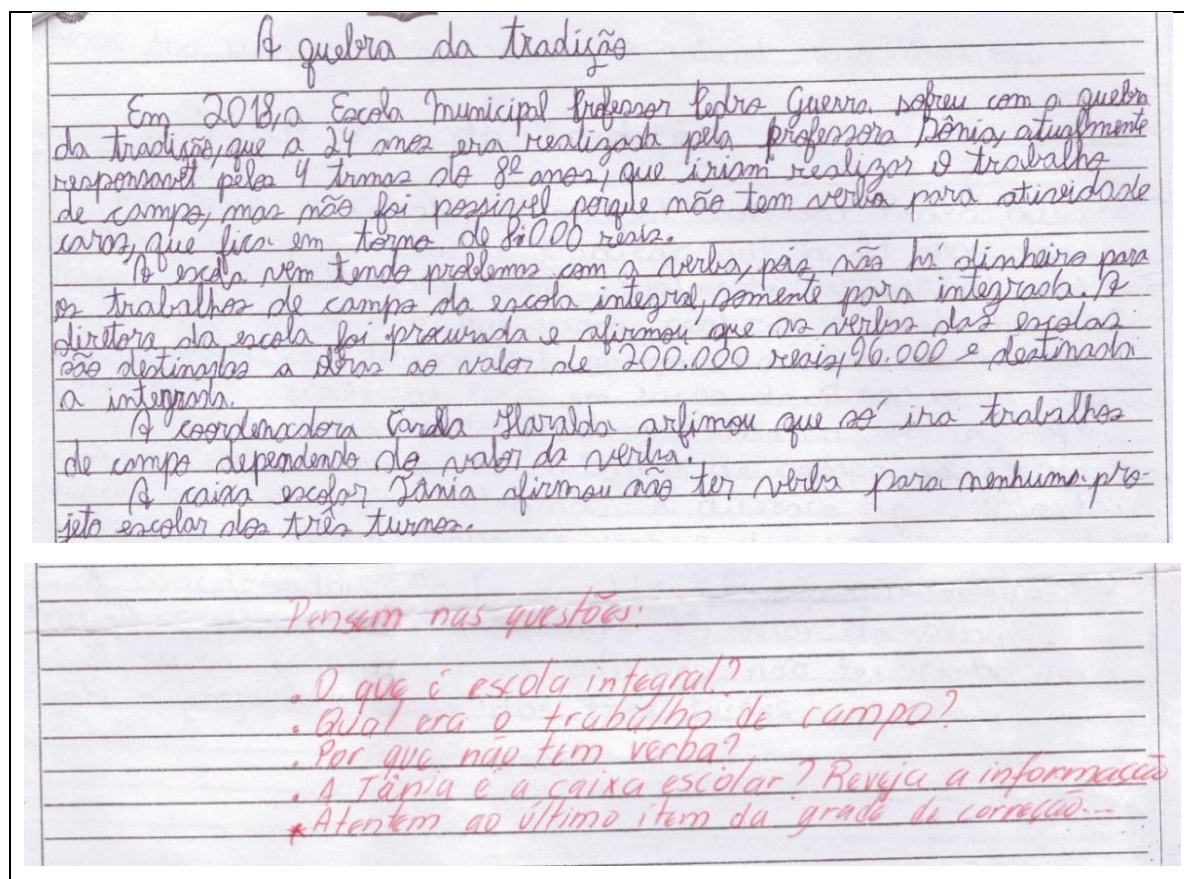 A quebra da tradição
Em 2018, a Escola Municipal Professor Pedro Guerra sofreu com a quebra
da tradição, que a 24 anos era realizada pela professora Sônia, atualmente
responsavel pelas 4 turmas do 8º anos, que iriam realizar o trabalho
de campo, mas não foi possivel porque não tem verba para atividade
caros, que fica em torno de 8:000 reais.
A escola vem tendo problemas com a verba, pois não há dinheiro para
os trabalhos de campo da escola integral, somente para integrada. A
diretora da escola foi procurada e afirmou que as verbas das escolas
são destinadas a obras ao valor de 200.000 reais, 96.000 e destinada
a integrada.
A coordenadora Haralda arfimou que só ira trabalhos
de campo dependendo do valor da verba.
A caixa escolar Tânia afirmou não ter verba para nenhuma pro-
jeto escolar dos três turnos.
Pensem nas questões:
. O que é escola integral?
. Qual era o trabalho de campo?
. Por que não tem verba?
. A Tânia é a caixa escolar? Reveja a informação
* Atentem ao último item da grade de correção...